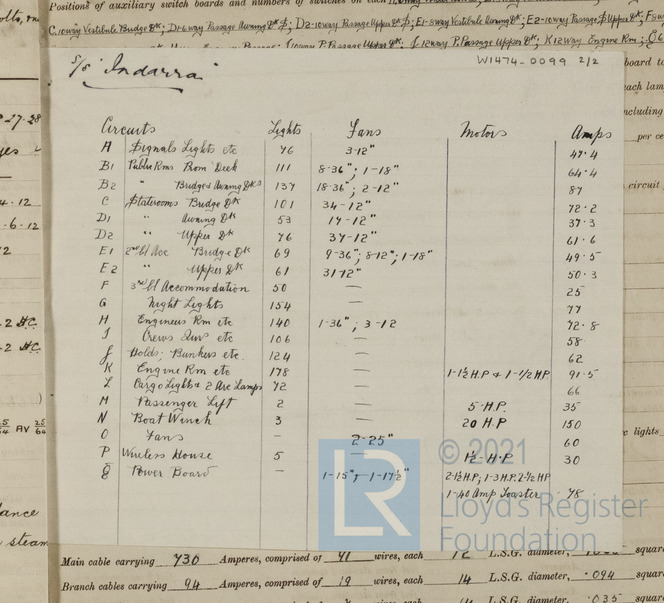 Positions of auxiliary switch boards and numbers of switches on each
C.10way Vestibule Bridge Dk; D1-6way Passage Awning Dk $; D2-10way Passage Upper Dk $; E1-8way Vestibule Awning Dk; E2-10way Upper Dk
10way P. Passage Upper Dk; $ 12way P. Passage Upper Dk; K12Way Engine Rm
S/S "Indarra"
W1474-0099 2/2
Circuits Lights Fans Motors Amps
A Signals Lights etc 76 3-12" 47.4
B1 Public Rms Prom Deck 111 8-36"; 1-18" 64.4
B2 " Bridge & Awning Dks 137 18-36"; 2-12" 87
C Staterooms Bridge Dk 101 34-12" 72.2
D1 " Awning Dk 53 17-12" 37.3
D2 " Upper Dk 76 37-12" 61.6
E1 2nd Cl Acc Bridge Dk 69 9-36"; 8-12"; 1-18" 49.5
E2 " Upper Dk 61 31-12" 50.3
F 3rd Cl Accommodation 50 — 25
G Night Lights 154 — 77
H Engineers Rm etc 140 1-36"; 3-12 72.8
I Crews Qurs etc 106 — 58
J Holds; Bunkers etc. 124 — 62
K Engine Rm etc 178 — 1-1½ H.P & 1-½ H.P 91.5
L Cargo Lights & 2 Arc Lamps 72 — 66
M Passenger Lift 2 — 5 H.P. 35
N Boat Winch 3 — 20 H.P 150
O Fans — 2-25" 60
P Wireless House 5 — 1½-H.P 30
Q Power Board — 1-15"; 1-17½" 2-½H.P; 1-3H.P. 2-½HP
1-40 Amp Toaster 78
© 2021
Lloyd's Register
Foundation
LR
Main cable carrying 730 Amperes, comprised of 91 wires, each 12 L.S.G. diameter,
Branch cables carrying 94 Amperes, comprised of 19 wires, each 14 L.S.G. diameter, .094 square
L.S.G. diameter, .035 square